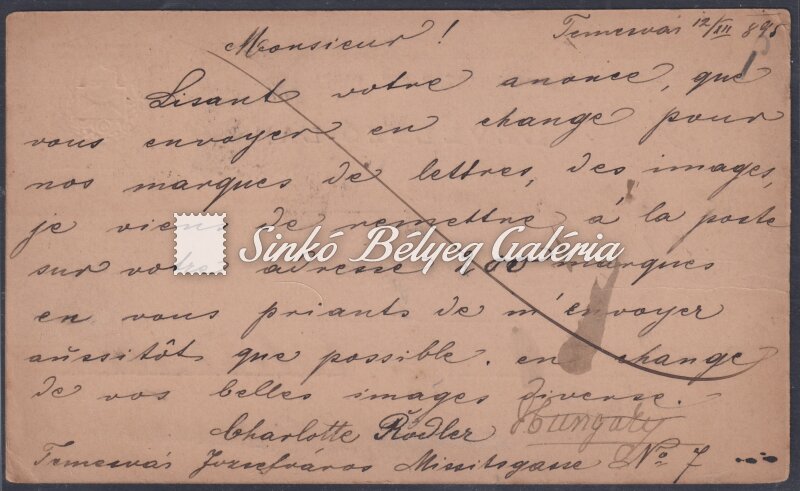 Monsieur! Temesvár 12/III 895
Lisant votre anonce, que
vous envoyer en change pour
nos marques de lettres, des images,
je viens de remettre á la poste
sur votre adresse 100 marques
Sinkó Bélyeg Galéria
en vous priants de m'envoyer
aussitôt que possible. en change
de vos belles images diverse.
Charlotte Rödler Hungary
Temesvár Jozsefváros Missitsgasse No 7